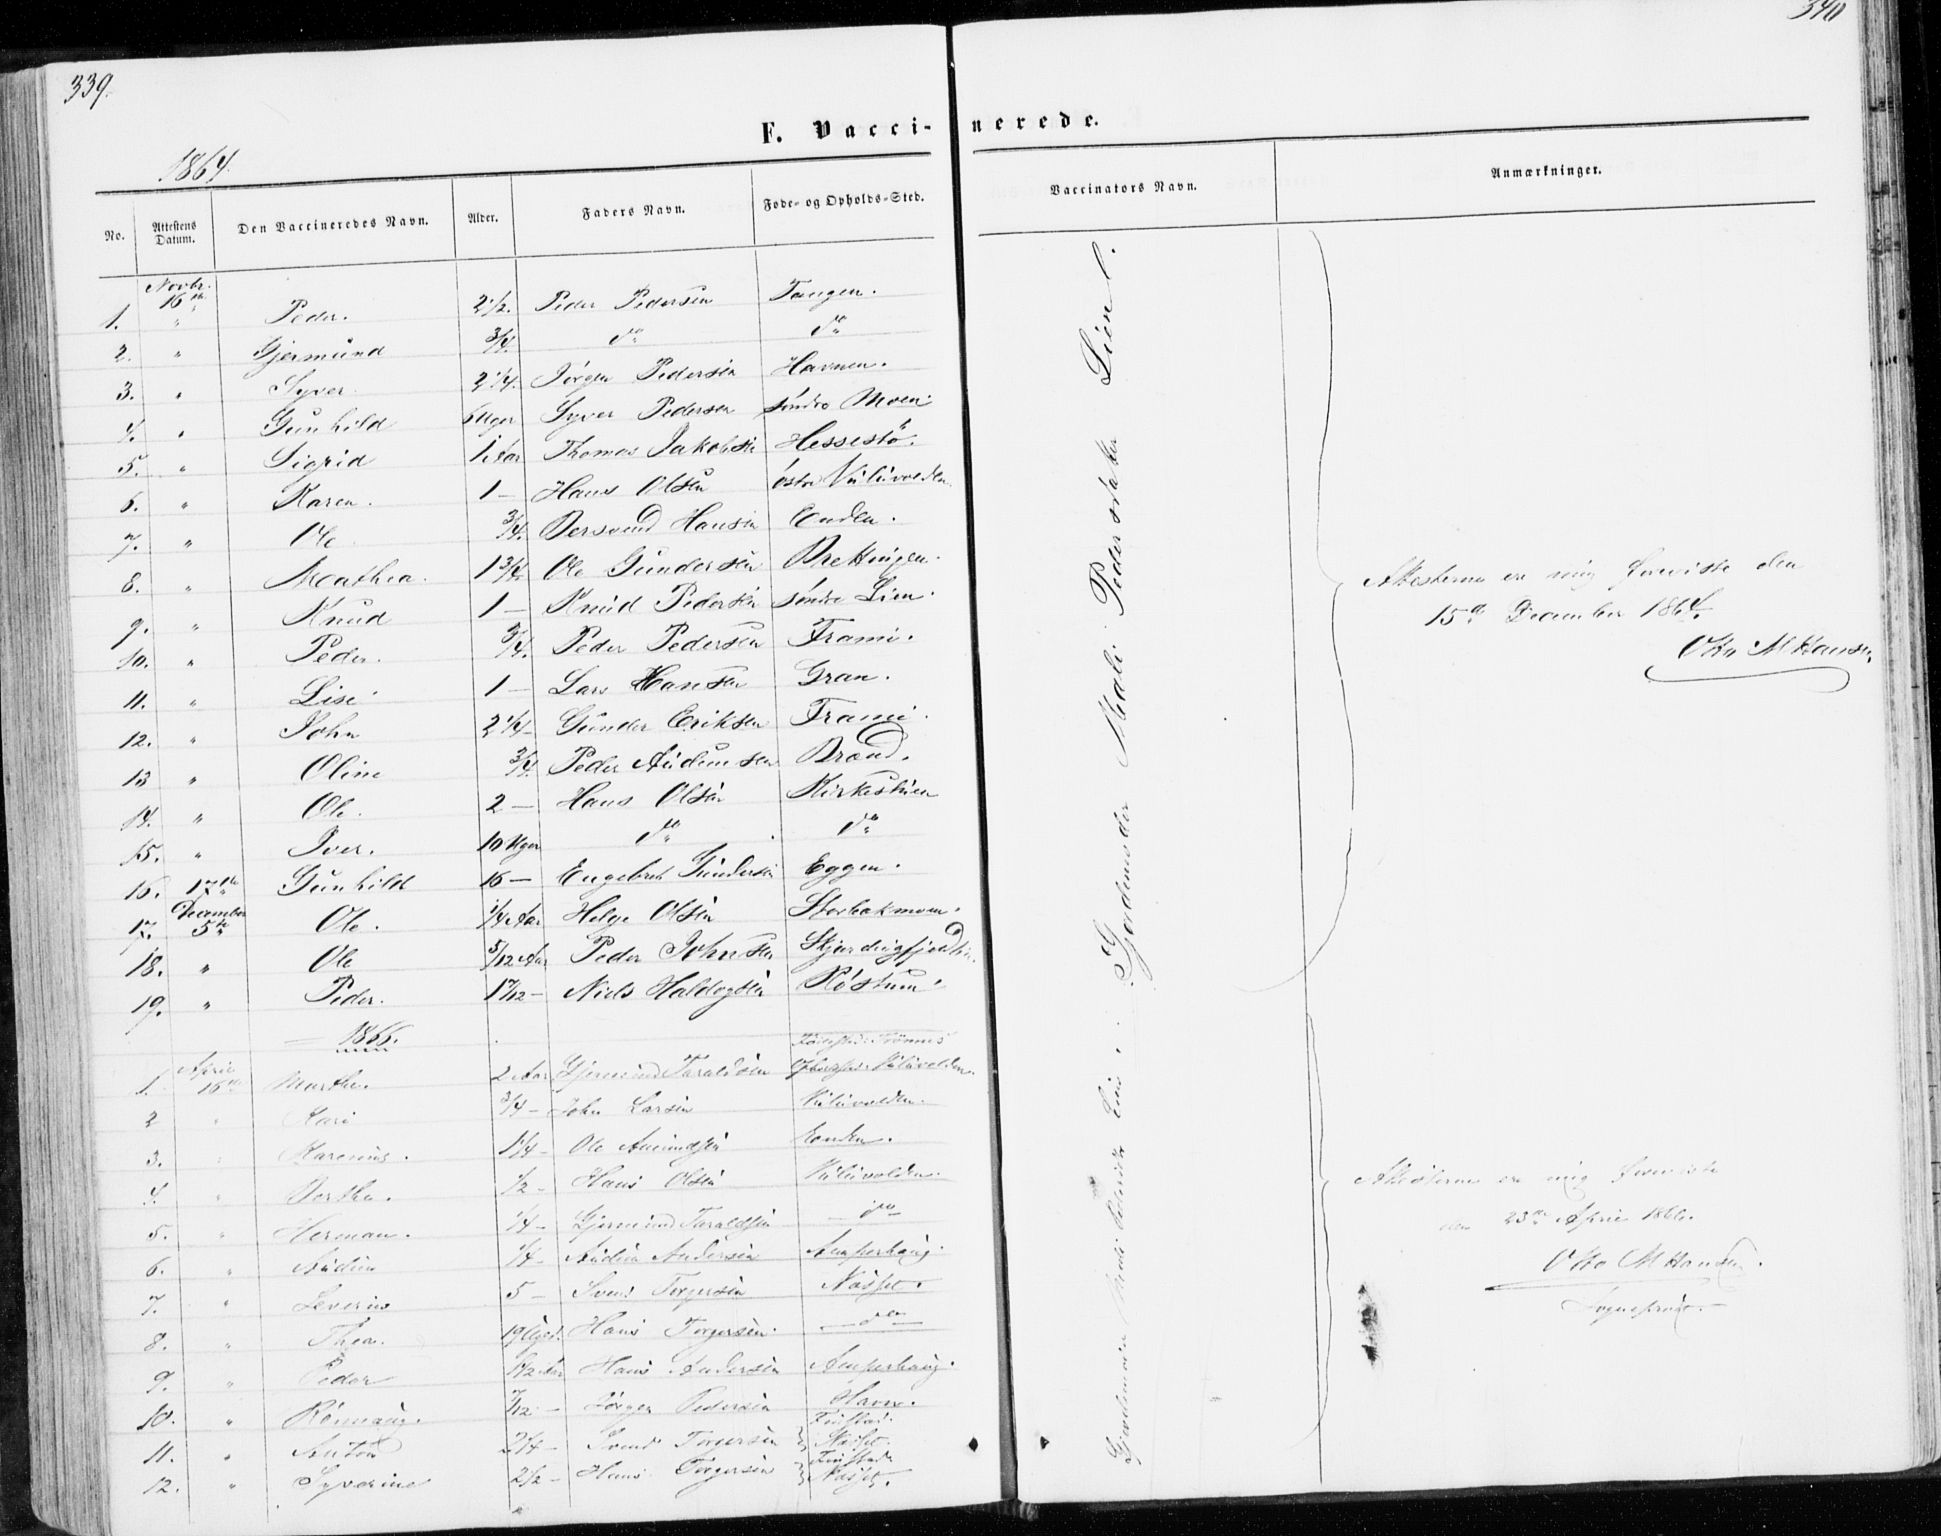 339.
340
F. Vacci-nerede.
1864.
No. Attestens Datum. Den Vaccineredes Navn. Alder. Faders Navn. Føde- og Opholds-Sted. Vaccinators Navn. Anmærkninger.
Novbr. 16de
1. " Peder. 2 1/2. Peder Pedersen Tangen.
2. " Gjermund 3/4. do do
3. " Syver. 2 1/4. Jørgen Pedersen Havnen.
4. " Gunhild 6 Uger Syver Pedersen søndre Moen.
5. " Sigrid 1 Aar Thomas Jakobsen Hessestø.
6. " Karen. 1 — Hans Olsen østre
7. " Ole. 3/4. Bersvend Hansen Enden.
8. " Mathea. 1 3/4. Ole Gundersen Brettingen.
9. " Knud 1 — Knud Pedersen søndre Lien.
10. " Peder. 3/4. Peder Pedersen Frami.
11. " Lise. 1 — Lars Hansen Gran.
12. " John 2 1/4 — Gunder Eriksen Frami.
13 " Oline 3/4. Peder Audunsen Brænd.
14. " Ole. 2 — Hans Olsen Kirkestuen
15. " Iver. 10 Uger do do
16. 17de Gunhild 16 — Engebret Gundersen Eggen.
December
17. 5te Ole. 1/4 Aar Helge Olsen Storbækmoen.
18. " Ole 5/12 Aar Peder Johnsen
19. " Peder. 1 7/12 — Niels Haldogsen Røstum.
1866.
April
1. 16de Marthe. 2 Aar Gjermund Taraldsen
2 " Kari 3/4 — John Larsen
3. " Karenus. 1 1/4 — Ole Amundsen Enden.
4. " Berthe. 1/2 — Hans Olsen
5. " Herman. 1/4 — Gjermund Taraldsen do
6. " Audun 1/4 — Audun Andersen Amperhaug.
7. " Severin 5 — Svend Torgersen Næsset.
8. " Thea. 19 Uger. Hans Torgersen. do
9. " Peder Hans Andersen Amperhaug.
10. " Rønnaug. 7/12 — Jørgen Pedersen Havn.
11. " Anton 2 1/4 — Svend Torgersen Finstad. Næsset.
12. " Syverine 2 1/2 — Hans Torgersen Finstad. Næsset.
Gjordemoder Mali Pedersdatter Lien.
Attesterne ere mig foreviste den
15de December 1864.
Otto M Hansen
Gjordemoder Mali Pedersdtr Lien.
Attesterne ere mig foreviste
den 23de April 1866.
Otto M Hansen.
Sognepræst.